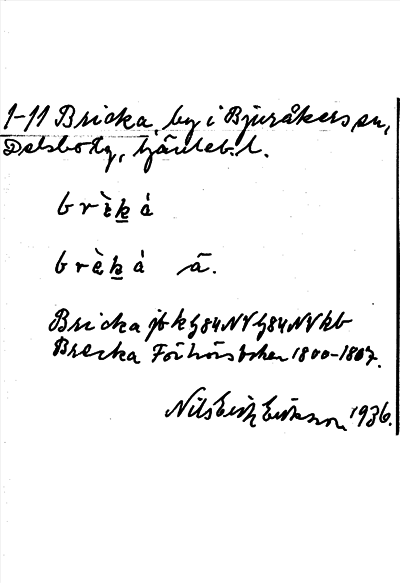 1-11 Bricka, by i Bjuråkers sn,
Delsbo tg, Gävleb. l.
brèkà
brèkà ā.
Bricka jbk G84NV G84NV kb
Brecka Förhörsboken 1800-1807.
Nils Erik Eriksson 1936.